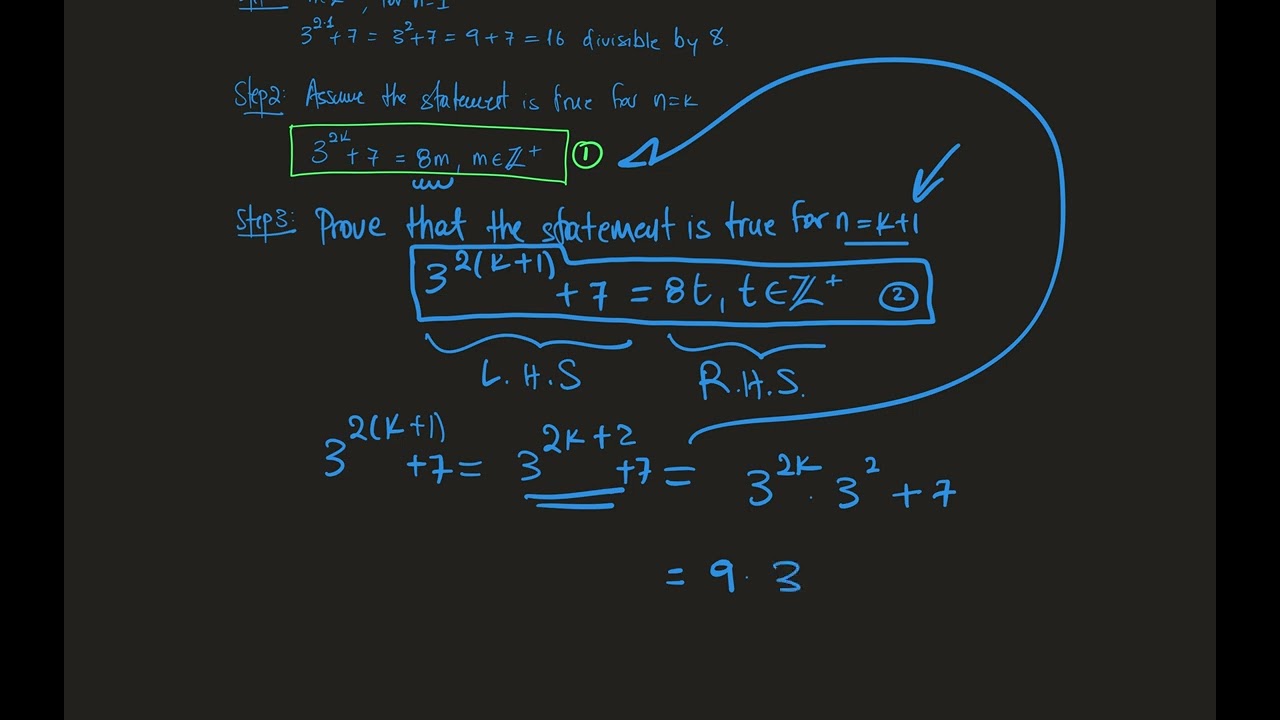 for n=1
3^{2·1}+7 = 3^2+7 = 9+7 = 16 divisible by 8.
Step2: Assume the statement is true for n=k
3^{2k}+7 = 8m, m∈ℤ^+ ①
Step3: Prove that the statement is true for n=k+1
3^{2(k+1)}+7 = 8t, t∈ℤ^+ ②
L.H.S R.H.S.
3^{2(k+1)}+7 = 3^{2k+2}+7 = 3^{2k}·3^2+7
= 9·3